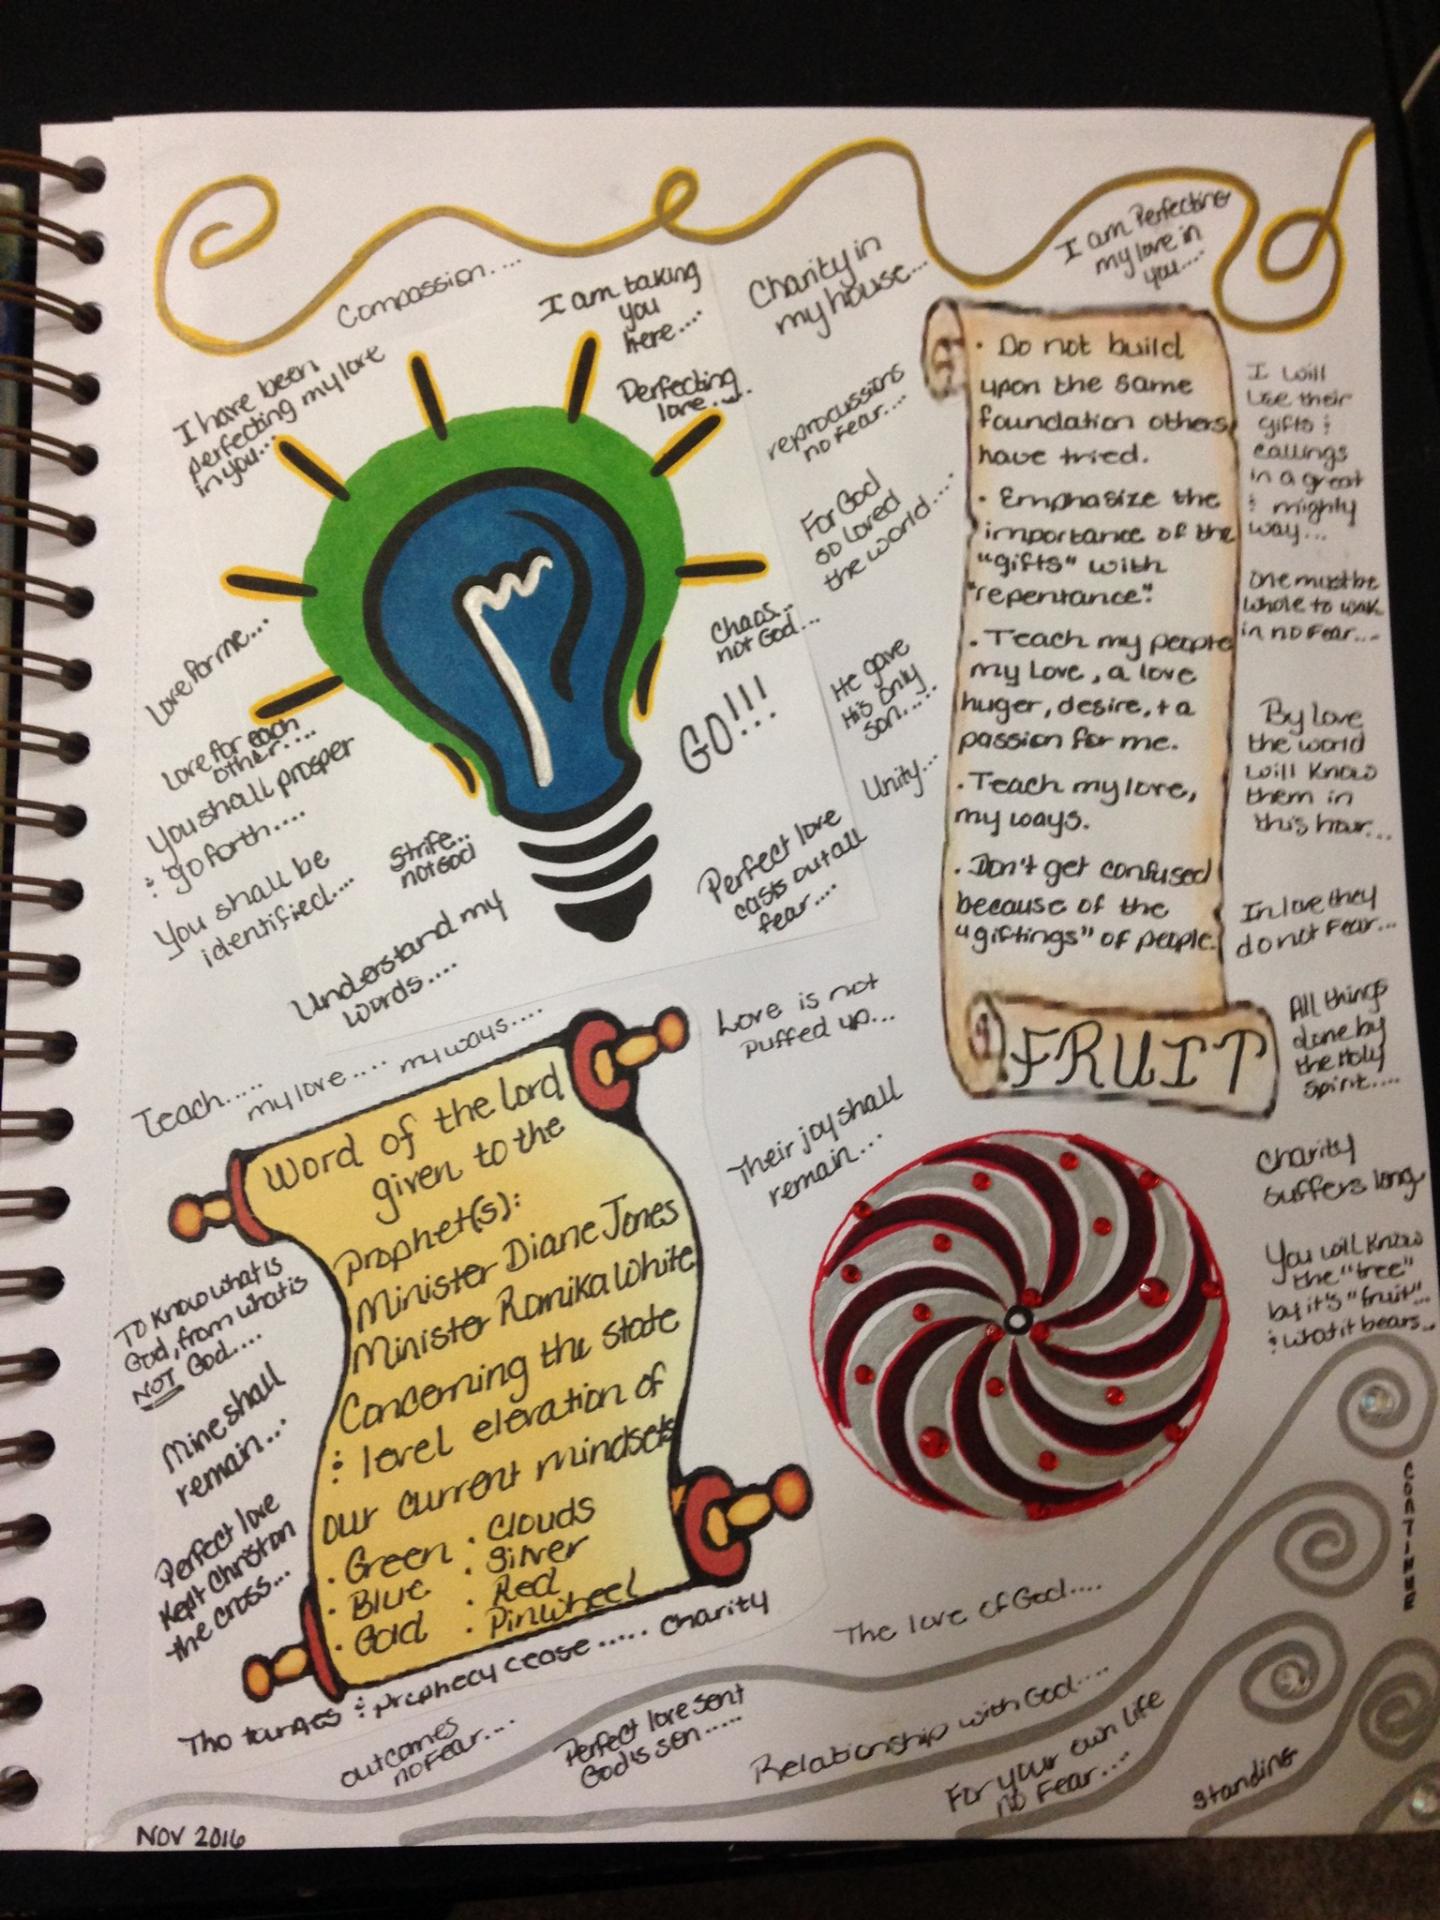 Compassion....
I am taking
you
here....
Charity in
my house...
I am Perfecting
my love in
you....
I have been
perfecting my love
in you...
Perfecting
love.....
reprocussions
no Fear....
For God
so loved
the world....
Chaos...
not God...
GO!!!
He gave
His only
son.....
Unity...
Perfect love
casts out all
fear....
Love for me...
Love for each
other....
You shall prosper
& go forth....
You shall be
identified....
Strife...
not God
Understand my
words....
• Do not build
upon the same
foundation others
have tried.
• Emphasize the
importance of the
"gifts" with
"repentance".
• Teach my people
my Love, a love
huger, desire, + a
passion for me.
• Teach my love,
my ways.
• Don't get confused
because of the
"giftings" of people.
FRUIT
I will
use their
gifts &
callings
in a great
& mighty
way...
One must be
whole to walk
in no Fear....
By love
the world
will know
them in
this hour...
In love they
do not Fear...
All things
done by
the Holy
Spirit....
Charity
suffers long
You will know
the "tree"
by it's "fruit"...
& what it bears...
Love is not
puffed up...
Their joy shall
remain...
Teach.....
my love....
my ways....
Word of the Lord
given to the
Prophet(s):
Minister Diane Jones
Minister Romika White
Concerning the state
& level elevation of
our current mindsets
• Green • Clouds
• Blue • Silver
• Gold • Red
• Pinwheel
To know what is
God, from what is
NOT God....
Mine shall
remain...
Perfect love
kept Christ on
the cross...
Tho tounges & prophecy cease ..... Charity
outcomes
no Fear...
Perfect love sent
God is son.....
The love of God....
Relationship with God....
For your own life
no Fear...
Standing
CONTINUE
Nov 2016